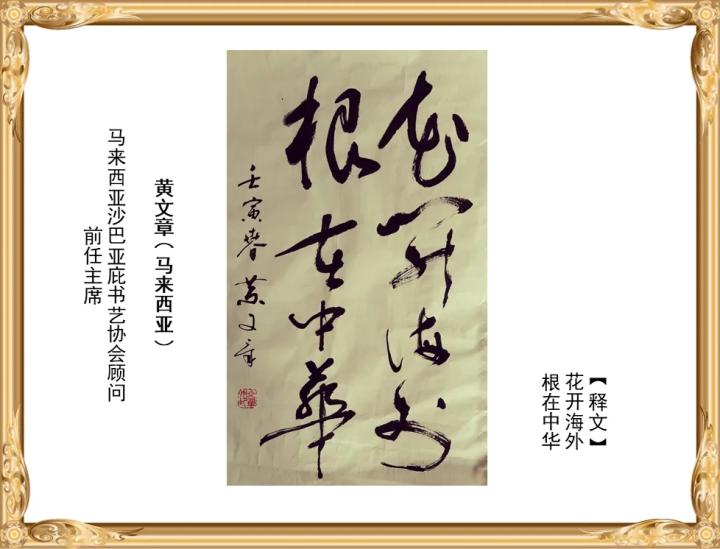 【释文】
花开海外
根在中华
花開海外
根在中華
壬寅春 黄文章
黄文章（马来西亚）
马来西亚沙巴亚庇书艺协会顾问
前任主席